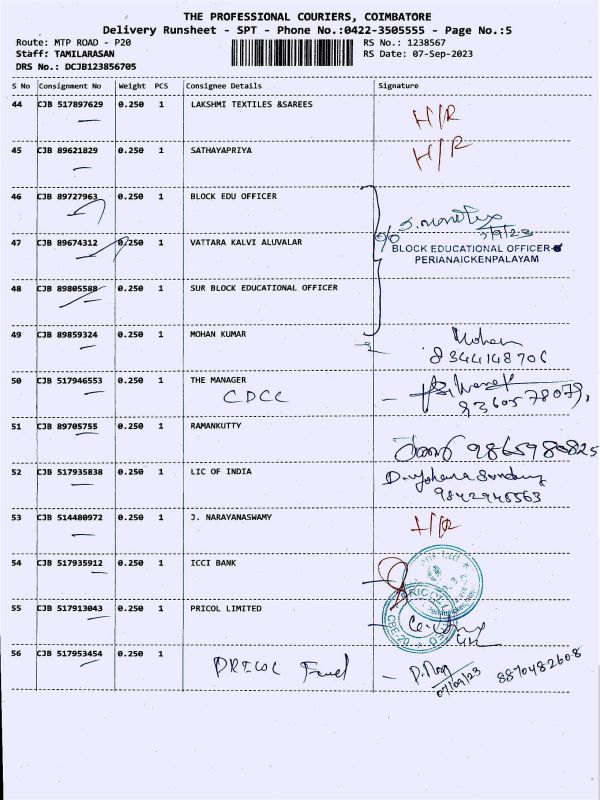 THE PROFESSIONAL COURIERS, COIMBATORE
Delivery Runsheet - SPT - Phone No.:0422-3505555 - Page No.:5
Route: MTP ROAD - P20
RS No.: 1238567
Staff: TAMILARASAN
RS Date: 07-Sep-2023
DRS No.: DCJB123856705
S No Consignment No Weight PCS Consignee Details Signature
44 CJB 517897629 0.250 1 LAKSHMI TEXTILES &SAREES
H/R
45 CJB 89621829 0.250 1 SATHAYAPRIYA
H/R
46 CJB 89727963 0.250 1 BLOCK EDU OFFICER
7/9/23
47 CJB 89674312 0.250 1 VATTARA KALVI ALUVALAR
BLOCK EDUCATIONAL OFFICER
PERIANAICKENPALAYAM
48 CJB 89805588 0.250 1 SUR BLOCK EDUCATIONAL OFFICER
49 CJB 89859324 0.250 1 MOHAN KUMAR
Mohan
8344148706
50 CJB 517946553 0.250 1 THE MANAGER
CDCC
9360578079,
51 CJB 89705755 0.250 1 RAMANKUTTY
9865980825
52 CJB 517935838 0.250 1 LIC OF INDIA
9842946563
53 CJB 514480972 0.250 1 J. NARAYANASWAMY
H/R
54 CJB 517935912 0.250 1 ICCI BANK
55 CJB 517913043 0.250 1 PRICOL LIMITED
CBE-20
56 CJB 517953454 0.250 1
PRICOL
07/09/23
8870482608